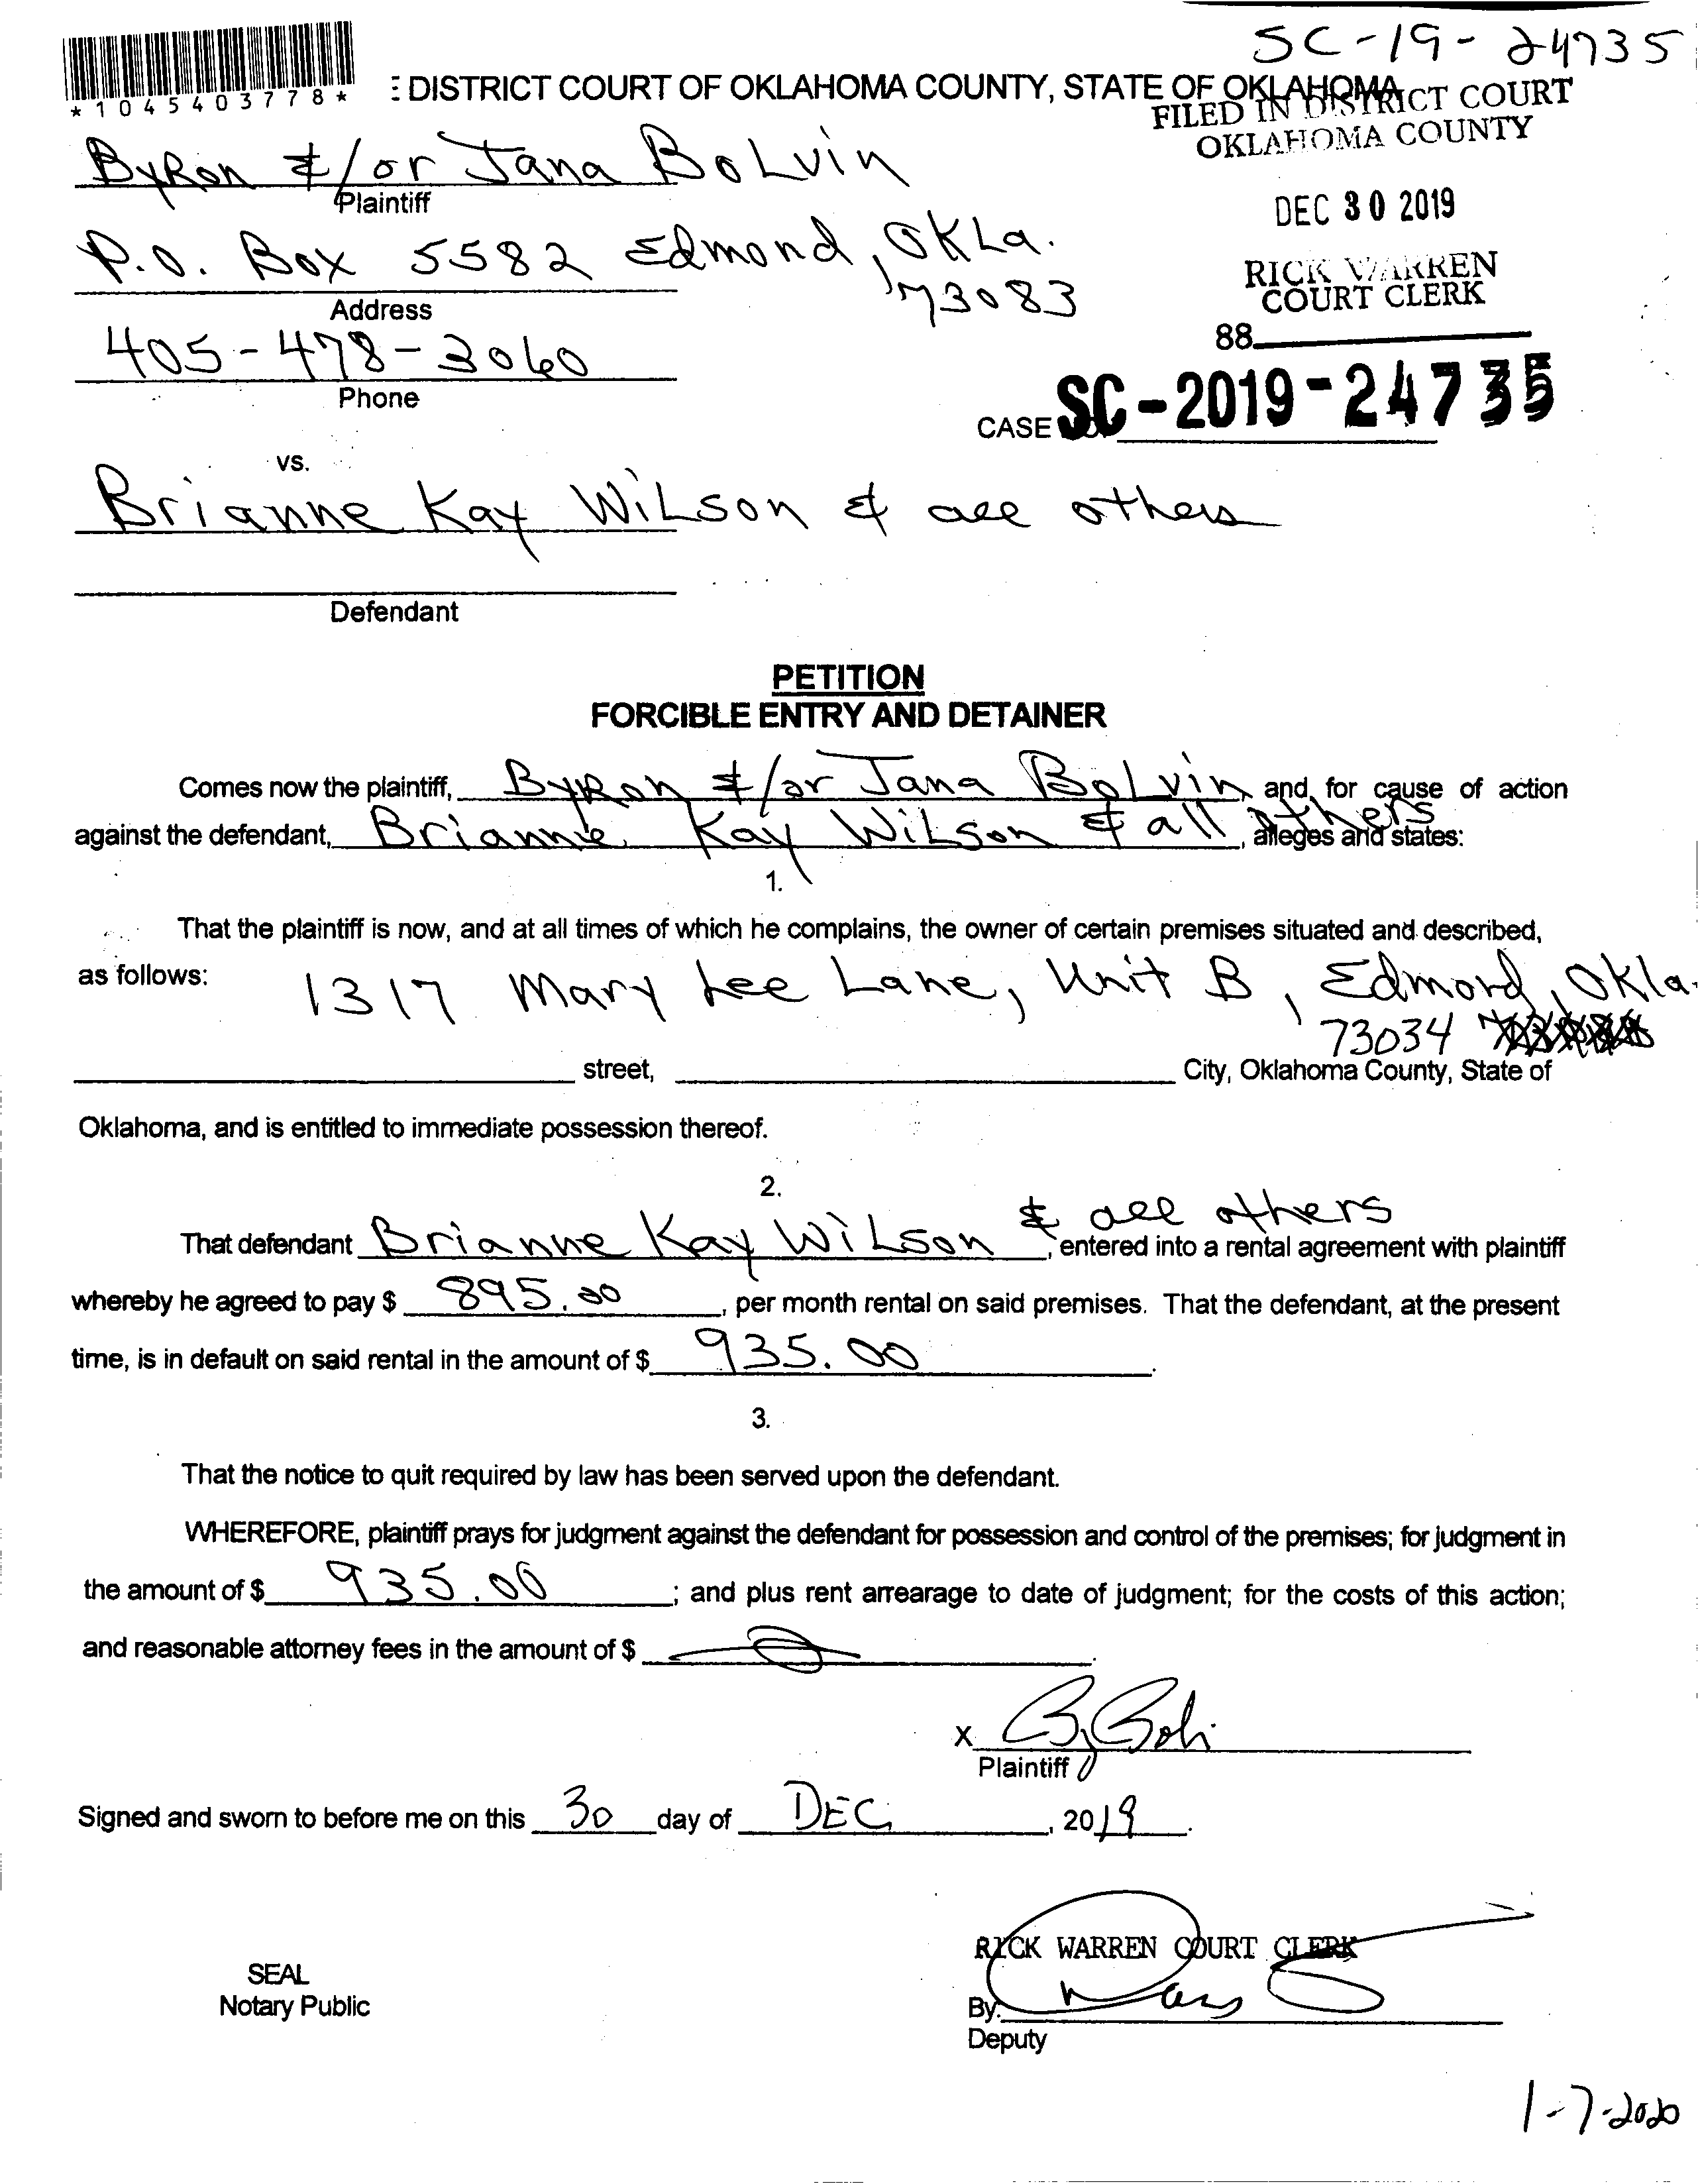 SC-19-24735
*1045403778*
: DISTRICT COURT OF OKLAHOMA COUNTY, STATE OF OKLAHOMA
FILED IN DISTRICT COURT
OKLAHOMA COUNTY
DEC 30 2019
RICK WARREN
COURT CLERK
88
Byron &/or Jana Bolvin
Plaintiff
P.O. Box 5582 Edmond, Okla.
73083
Address
405-478-3060
Phone
CASE SC-2019-24735
vs.
Brianne Kay Wilson & all others
Defendant
PETITION
FORCIBLE ENTRY AND DETAINER
Comes now the plaintiff, Byron &/or Jana Bolvin and, for cause of action
against the defendant, Brianne Kay Wilson & all others, alleges and states:
1.
That the plaintiff is now, and at all times of which he complains, the owner of certain premises situated and described,
as follows: 1317 Mary Lee Lane, Unit B, Edmond, Okla.
73034
street, City, Oklahoma County, State of
Oklahoma, and is entitled to immediate possession thereof.
2.
That defendant Brianne Kay Wilson & all others, entered into a rental agreement with plaintiff
whereby he agreed to pay $ 895.00, per month rental on said premises. That the defendant, at the present
time, is in default on said rental in the amount of $ 935.00.
3.
That the notice to quit required by law has been served upon the defendant.
WHEREFORE, plaintiff prays for judgment against the defendant for possession and control of the premises; for judgment in
the amount of $ 935.00; and plus rent arrearage to date of judgment; for the costs of this action;
and reasonable attorney fees in the amount of $
X
Plaintiff
Signed and sworn to before me on this 30 day of DEC, 2019.
RICK WARREN COURT CLERK
SEAL
Notary Public
By:
Deputy
1-7-2020